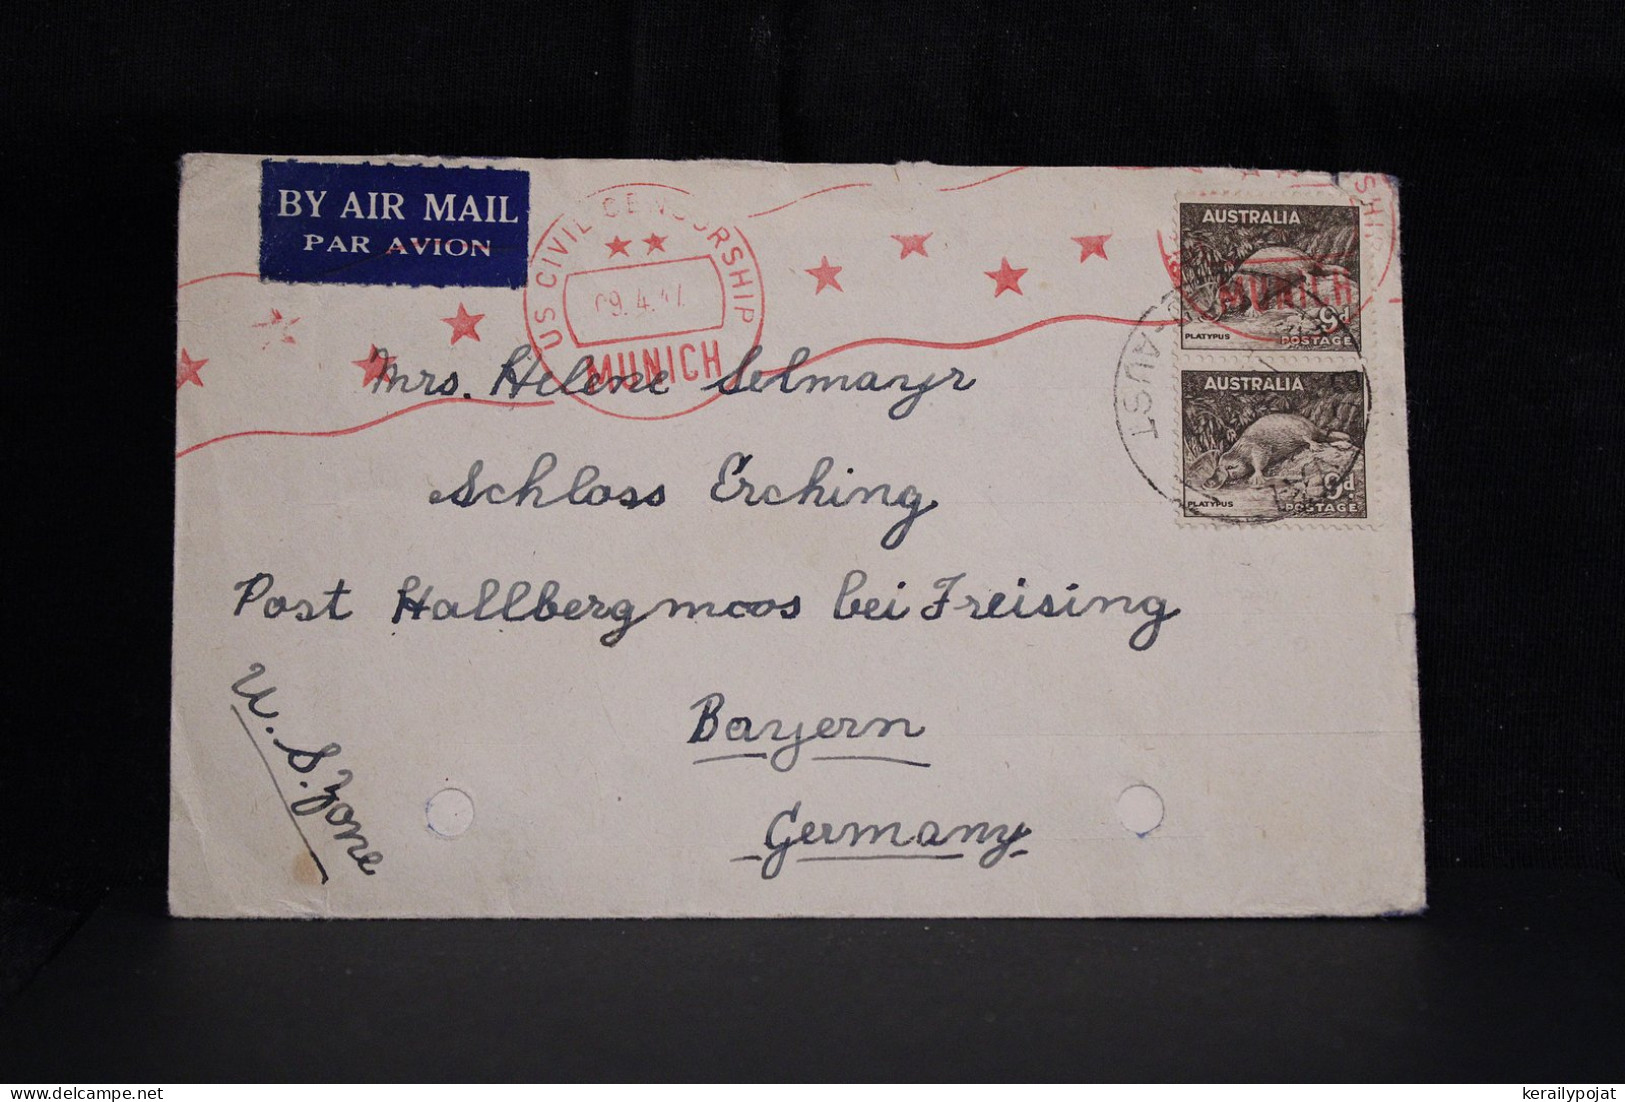 BY AIR MAIL
PAR AVION
US CIVIL CENSORSHIP
09.4.47
MUNICH
SHIP
MUNICH
AUSTRALIA
9d
PLATYPUS POSTAGE
AUSTRALIA
9d
PLATYPUS POSTAGE
AUST
Mrs. Helene Selmayr
Schloss Erching
Post Hallbergmoos bei Freising
Bayern
Germany
U.S. Zone
kerailypojat delcampe.net